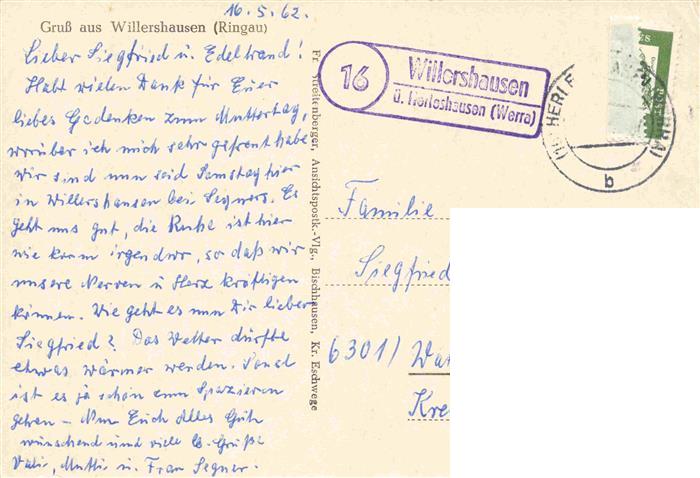 16.5.62.
Gruß aus Willershausen (Ringau)
Lieber Siegfried u. Edeltraud!
Habt vielen Dank für Euer
liebes Gedenken zum Muttertag,
worüber ich mich sehr gefreut habe
wir sind nun seid Samstag hier
in Willershausen bei Segners. Es
geht uns gut, die Ruhe ist hier
wie kaum irgendwo, so daß wir
unsere Nerven u Herz kräftigen
können. Wie geht es nun Dir lieber
Siegfried? Das Wetter dürfte
etwas wärmer werden. Sonst
ist es ja schön zum Spazieren
gehen – Nun Euch Alles Gute
wünschend und viele lb. Grüße
Vati, Mutti u. Frau Segner.
Fr. Streitenberger, Ansichtspostk.-Vlg., Bischhausen, Kr. Eschwege
16
Willershausen
ü. Herleshausen (Werra)
(16) HERLE
RRA)
b
Familie
Siegfried
6301/
Kre